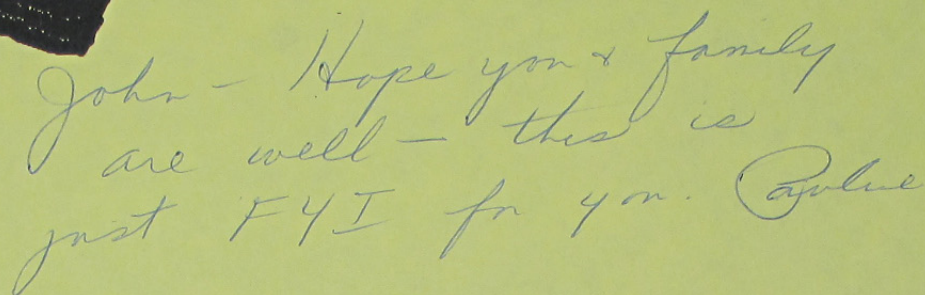 John - Hope you & family
are well - this is
just FYI for you. Pauline